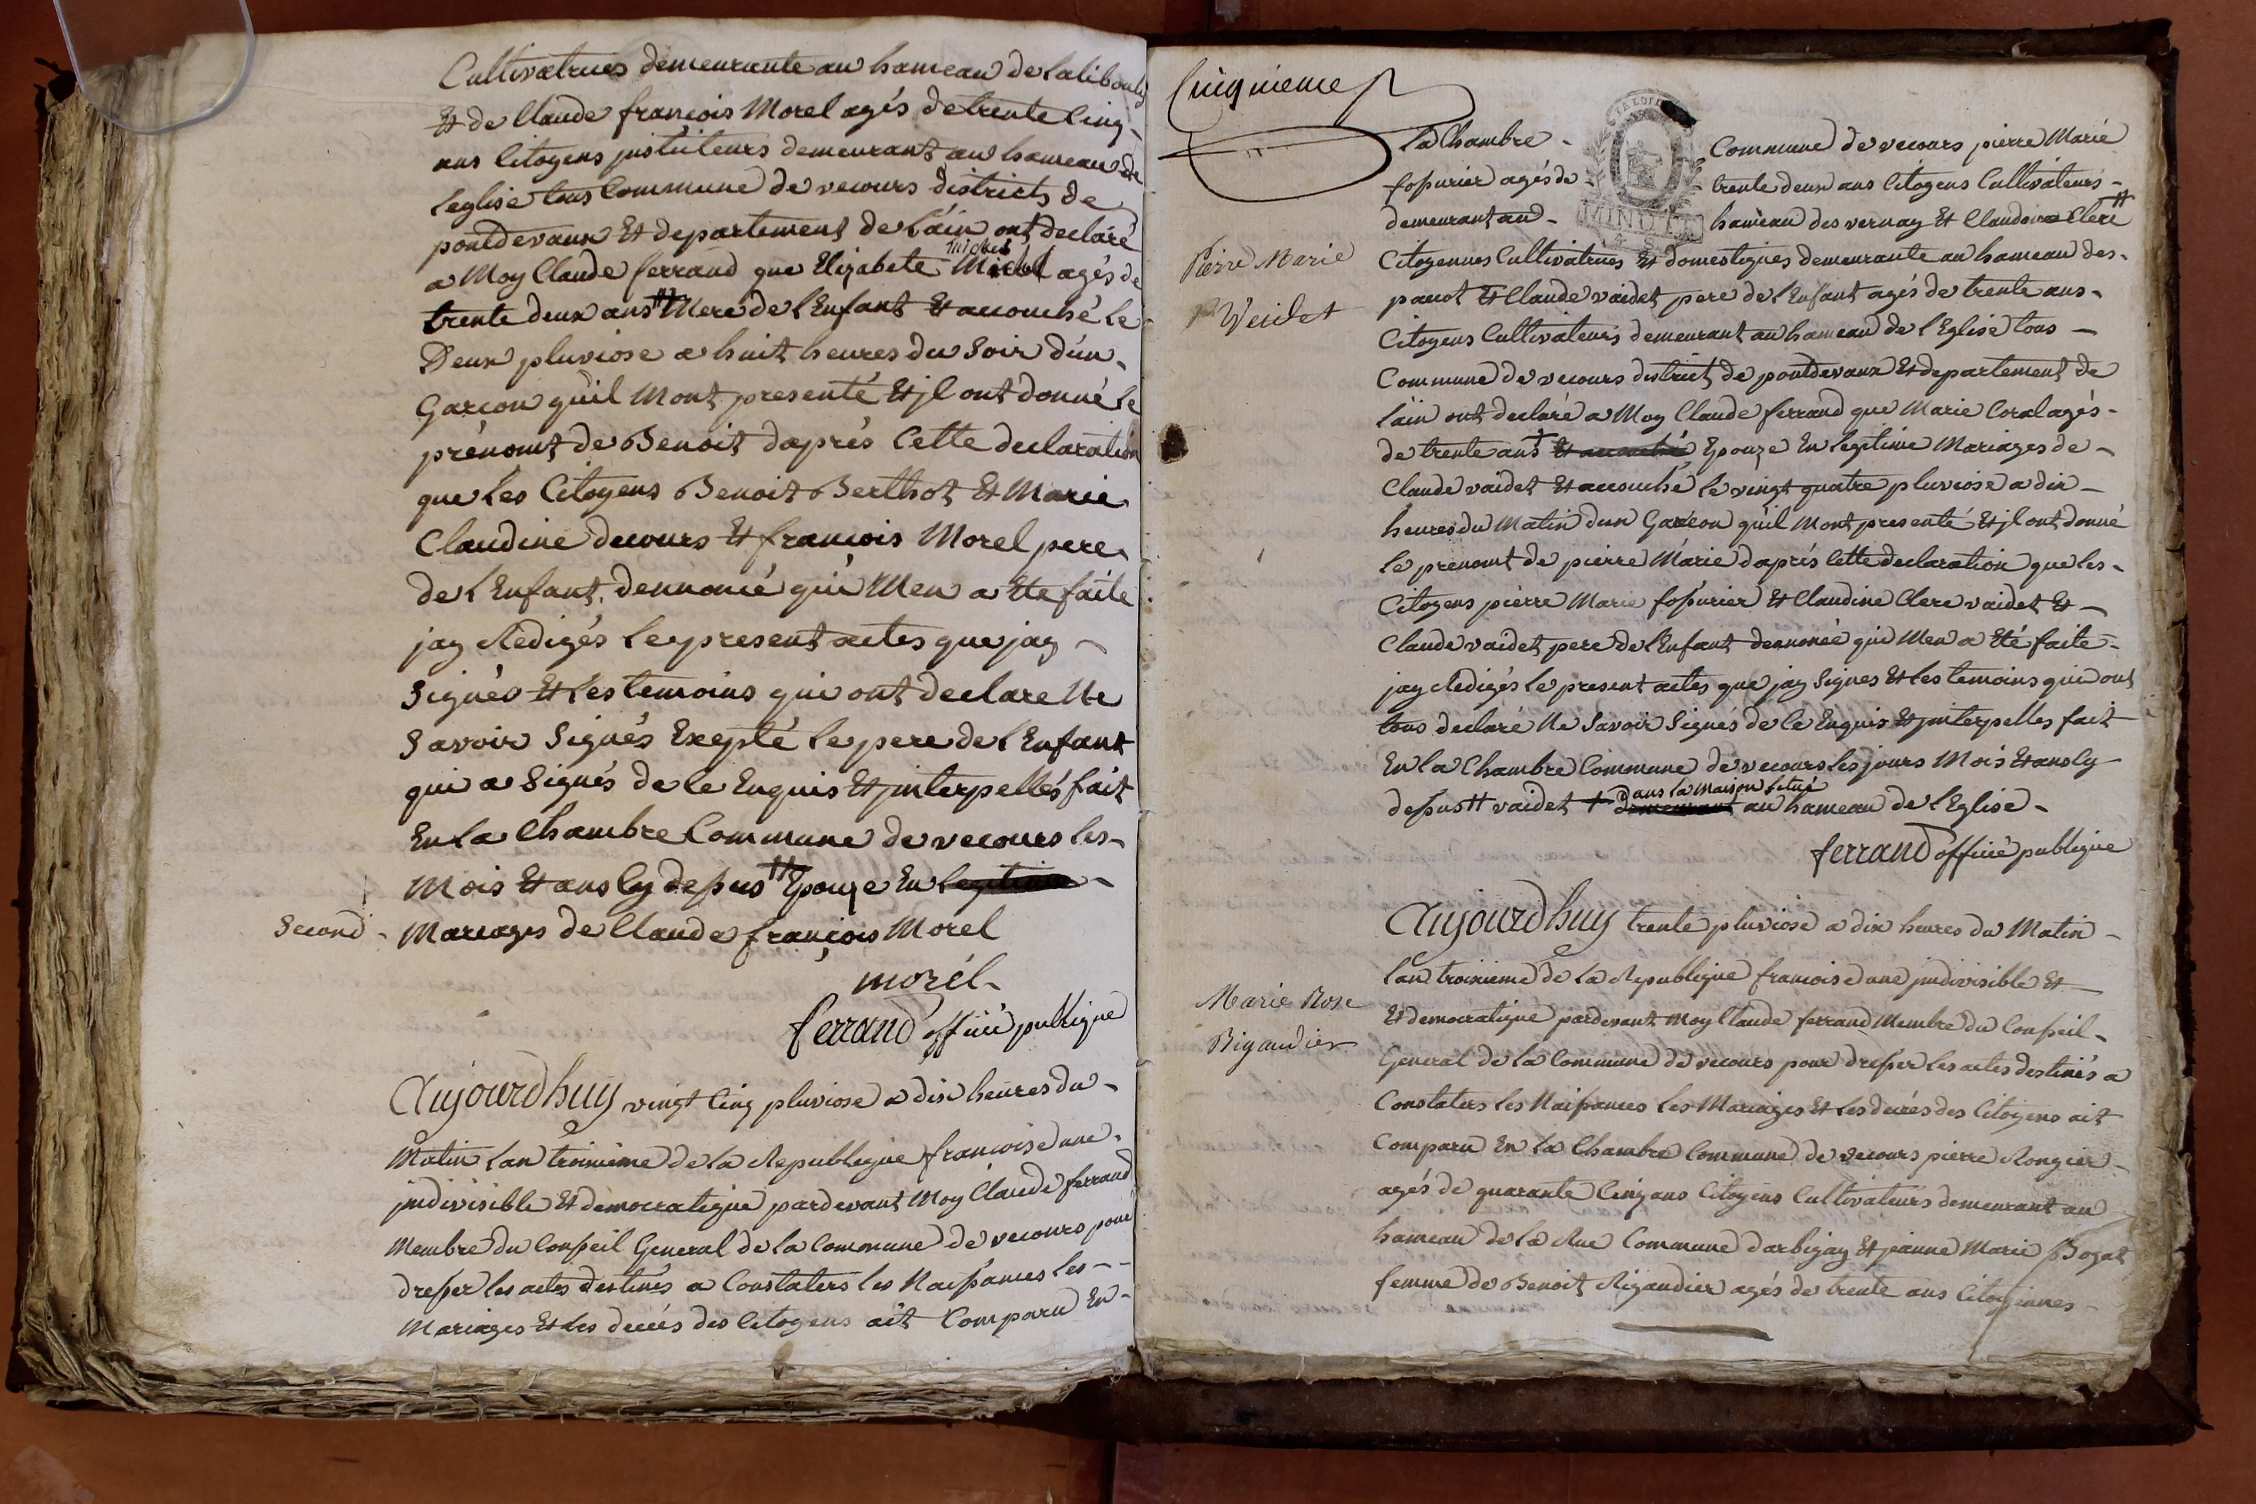 Cultivatrices demeurante au hameau de
Et de Claude francois Morel agés de trente Cinq
ans Citoyens justituteurs demeurant au hameau de
leglise tous Commune de vecours districts de
pontdevaux Et departement de L'ain ont declaré
michel
a Moy Claude ferrand que Elizabete Michel agés de
trente deux ans # Mere de l'Enfant Et accouché le
Deux pluviose a huit heures du Soir d'un
Garcon qu'il Mont presenté Et jl ont donné le
prénomt de Benoit daprés Cette declaration
que les Citoyens Benoit Berthot Et Marie
Claudine decours Et francois Morel pere
de l'Enfant dennoncé qui Men a Ete faite
jay Redigés le present actes que jay
Signés Et les temoins qui ont declare Ne
Savoir Signés Exepté le pere de l'Enfant
qui a Signés de le Enquis Et jnterpellés fait
En la Chambre Commune de vecours les
Mois Et ans Cy dessus # Epouze En legitime
Second Mariages de Claude françois Morel
morél
ferrand officié publique
Aujourdhuy vingt Cinq pluviose a dix heures du
Matin lan troixieme de la Republique francoise une
jndivisible Et democratique pardevant Moy Claude ferrand
Membre du Conseil General de la Commune de vecours pour
dresser les actes destinés a Constaters les Naissances les
Mariages Et les decés des Citoyens ait Comparu En
Cinquieme
la Chambre Commune de vecours pierre Marie
fossurier agés de trente deux ans Citoyens Cultivateurs
demeurant au hameau des vernay Et Claudine Clere #
MINUTE
Citoyennes Cultivatrices Et domestiques demeurante au hameau des
Pierre Marie
Veidet
pacot Et Claude vaidet pere de l'Enfant agés de trente ans
Citoyens Cultivateurs demeurant au hameau de l'Eglise tous
Commune de vecours district de pontdevaux Et departement de
l'ain ont declaré a Moy Claude ferrand que Marie Coral agés
de trente ans + Et accouché Epouze En legitime Mariages de
Claude vaidet Et accouché le vingt quatre pluviose a dix
heures du Matin dun Garcon qu'il Mont presenté Et jl ont donné
le prenomt de pierre Marie daprés Cette declaration que les
Citoyens pierre Marie fossurier Et Claudine Clere vaidet Et
Claude vaidet pere de l'Enfant dennoncée qui Men a Eté faite
jay Redigés le present actes que jay Signes Et les temoins qui ont
tous declaré Ne Savoir Signés de le Enquis Et jnterpelles fait
En la Chambre Commune de vecours les jours Mois Et ans Cy
dans la Maison Situé
dessus # vaidet + demeurant au hameau de l'Eglise
ferrand officié publique
Aujourdhuy trente pluviose a dix heures du Matin
lan troixieme de la Republique francoise une jndivisible Et
Marie Rose
Rigaudier
Et democratique pardevant Moy Claude ferrand Membre du Conseil
General de la Commune de vecours pour dresser les actes destinés a
Constaters les Naissances les Mariages Et les decés des Citoyens ait
Comparu En la Chambre Commune de vecours pierre Rongier
agés de quarante Cinq ans Citoyens Cultivateurs demeurant au
hameau de la Rue Commune darbigny Et jeanne Marie Bogat
femme de Benoit Rigaudier agés de trente ans Citoyennes